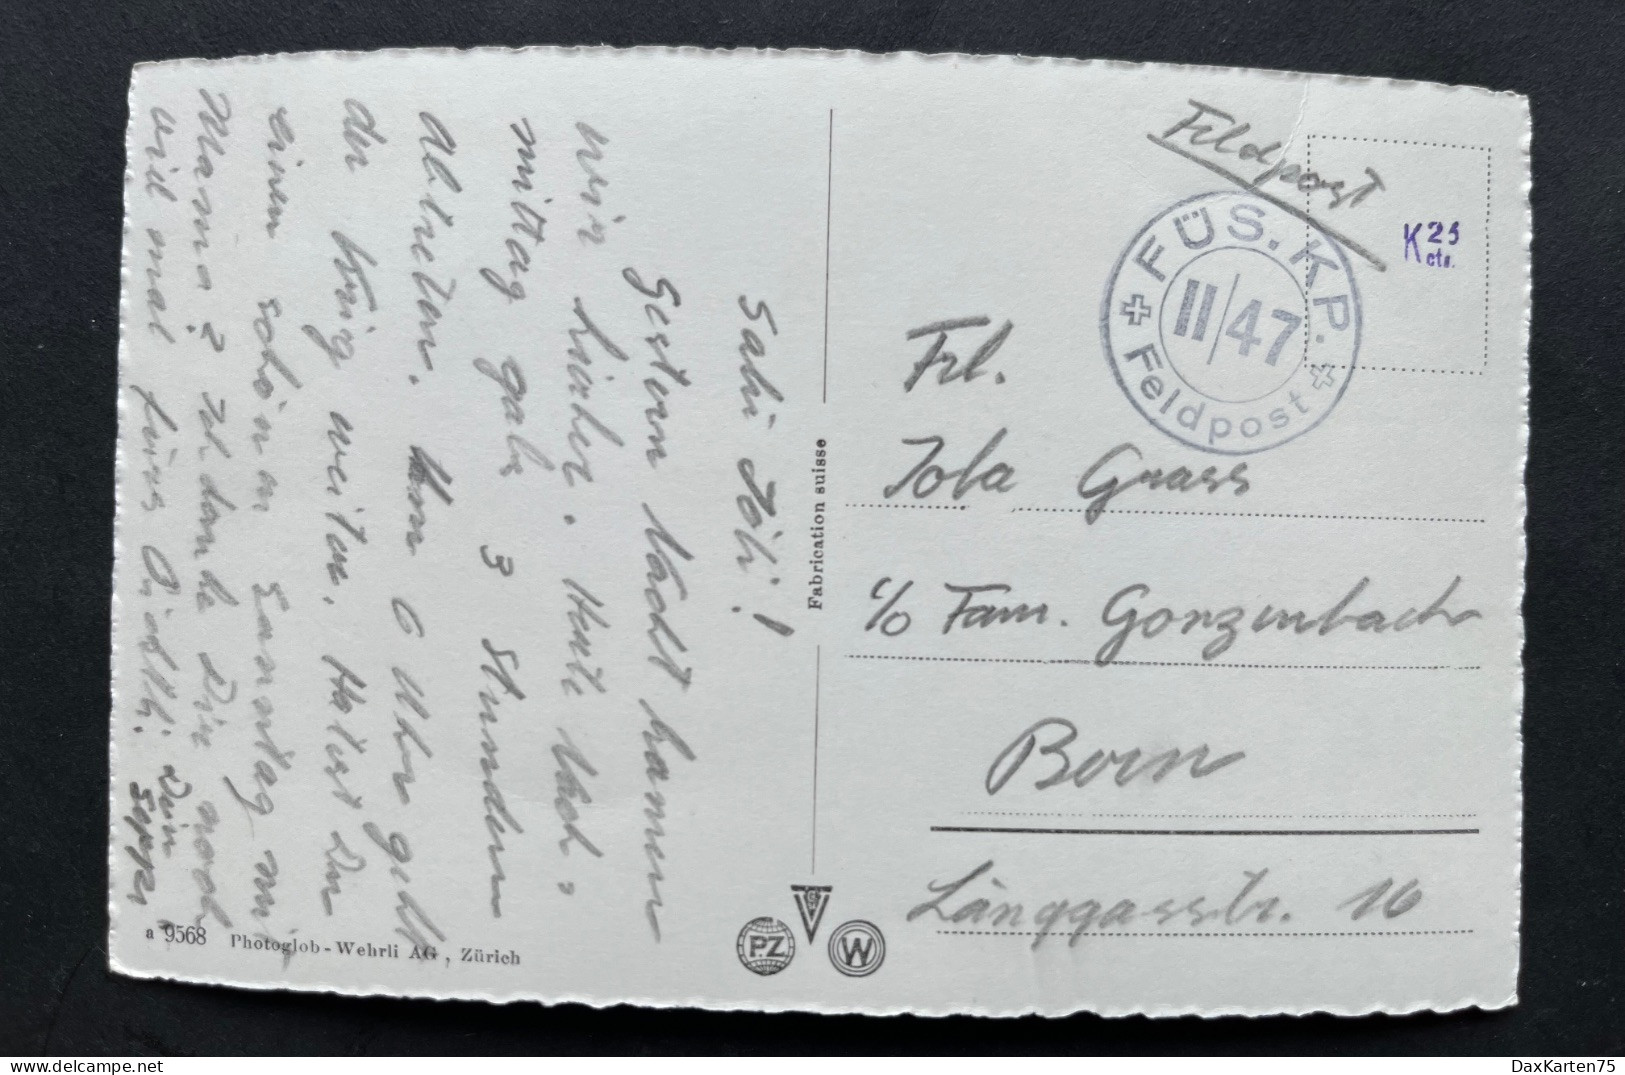 Sali Joli!
Gestern Nacht kamen
wir hierher. Heute Nach-
mittag gab 3 Stunden
abtreten. Um 6 Uhr geht
der Krieg weiter. Hattest Du
einen schönen Sonntag mit
Mama? Ich danke Dir noch
viel mal fürs
Dein
Seppi
a 9568 Photoglob-Wehrli AG, Zürich
Fabrication suisse
P.Z
W
Feldpost
FÜS. KP.
II/47
Feldpost
K 25
cts.
Frl.
Jola Grass
c/o Fam. Gonzenbach
Bern
Länggasstr. 16
DaxKarten75